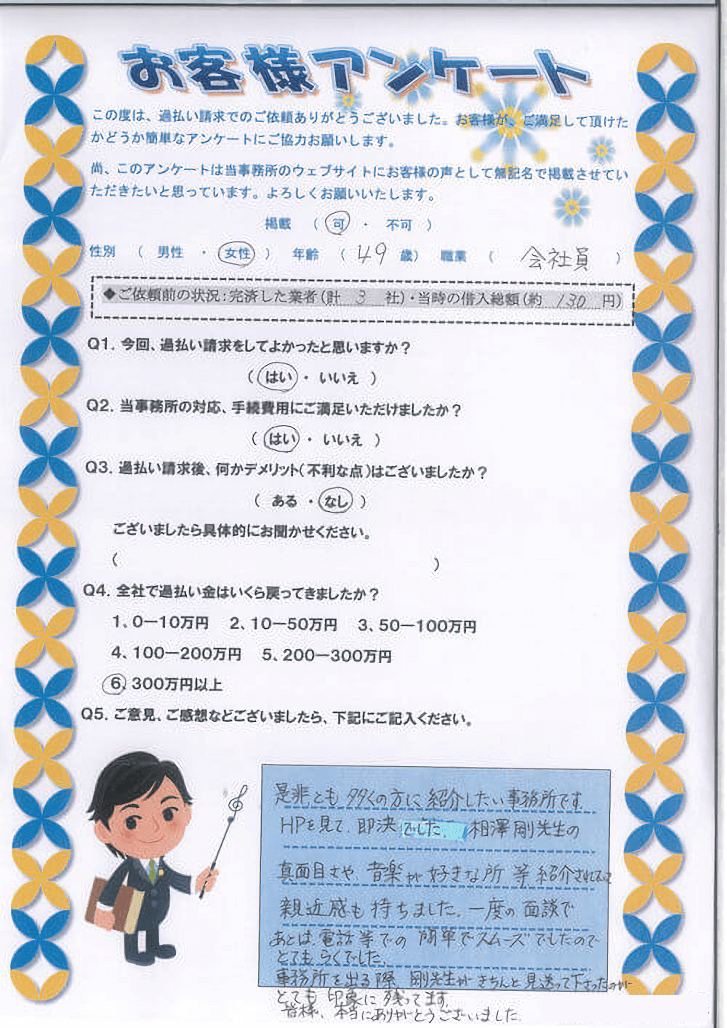 お客様アンケート
この度は、過払い請求でのご依頼ありがとうございました。お客様が、ご満足して頂けた
かどうか簡単なアンケートにご協力お願いします。
尚、このアンケートは当事務所のウェブサイトにお客様の声として無記名で掲載させてい
ただきたいと思っています。よろしくお願いいたします。
掲載 ( 可 ・ 不可 )
性別 ( 男性 ・ 女性 ) 年齢 ( 49 歳) 職業 ( 会社員 )
◆ご依頼前の状況:完済した業者(計 3 社)・当時の借入総額(約 130 円)
Q1. 今回、過払い請求をしてよかったと思いますか?
( はい ・ いいえ )
Q2. 当事務所の対応、手続費用にご満足いただけましたか?
( はい ・ いいえ )
Q3. 過払い請求後、何かデメリット(不利な点)はございましたか?
( ある ・ なし )
ございましたら具体的にお聞かせください。
( )
Q4. 全社で過払い金はいくら戻ってきましたか?
1、0ー10万円 2、10ー50万円 3、50ー100万円
4、100ー200万円 5、200ー300万円
6、300万円以上
Q5. ご意見、ご感想などございましたら、下記にご記入ください。
是非とも多くの方に紹介したい事務所です。
HPを見て、即決でした。相澤剛先生の
真面目さや、音楽が好きな所 等 紹介されていて
親近感も持ちました。一度の面談で
あとは、電話等での 簡単でスムーズでしたので
とてもらくでした。
事務所を出る際、剛先生が きちんと見送って下さったのが
とても印象に残ってます。
皆様、本当にありがとうございました。